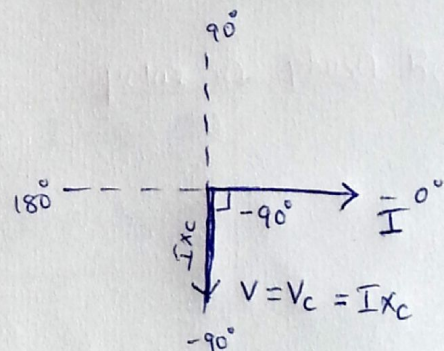 90°
180°
0°
Ī
-90°
IXc
V = Vc = IXc
-90°